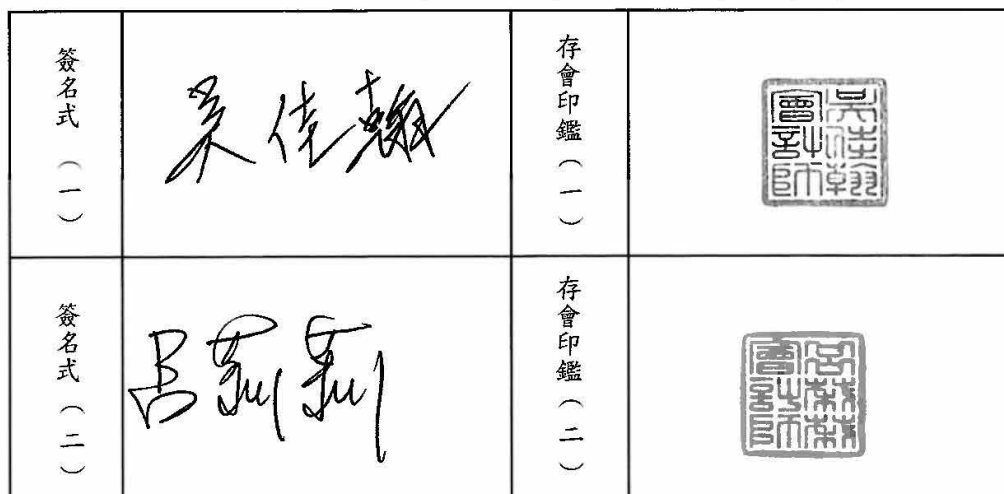 簽名式（一）
吳佳翰
存會印鑑（一）
吳佳翰
會計師
簽名式（二）
呂莉莉
存會印鑑（二）
呂莉莉
會計師